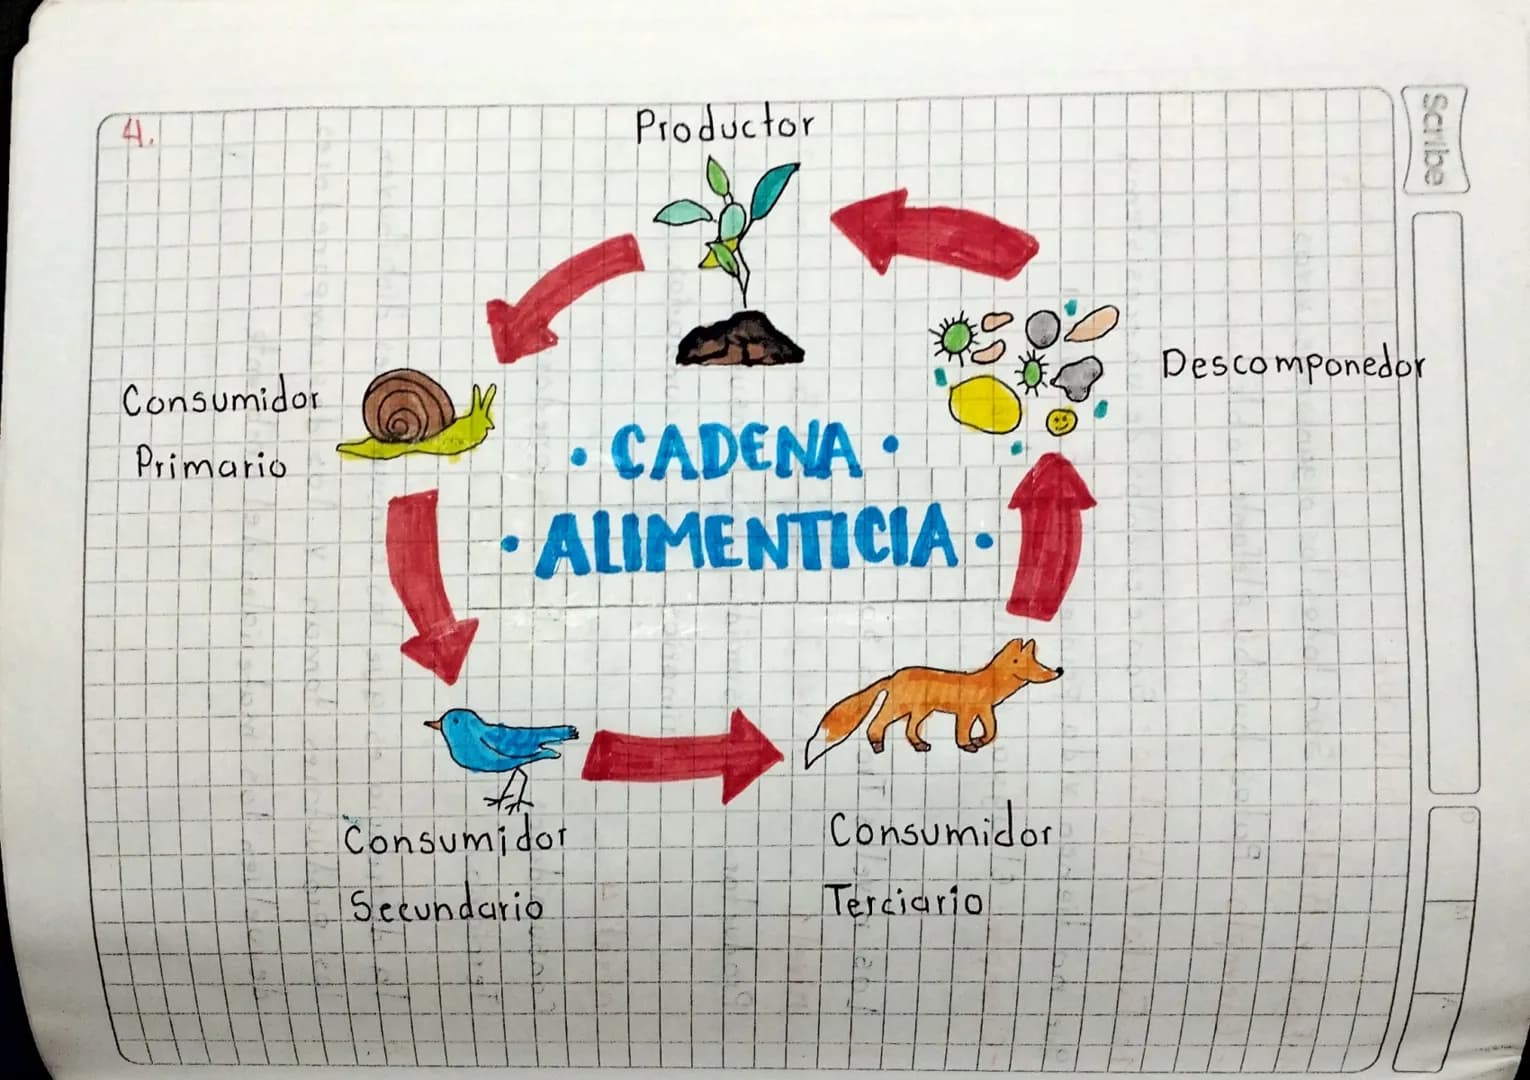 4.
Productor
Scribe
Descomponedor
Consumidor
Primario
• CADENA •
• ALIMENTICIA •
Consumidor
Secundario
Consumidor
Terciario